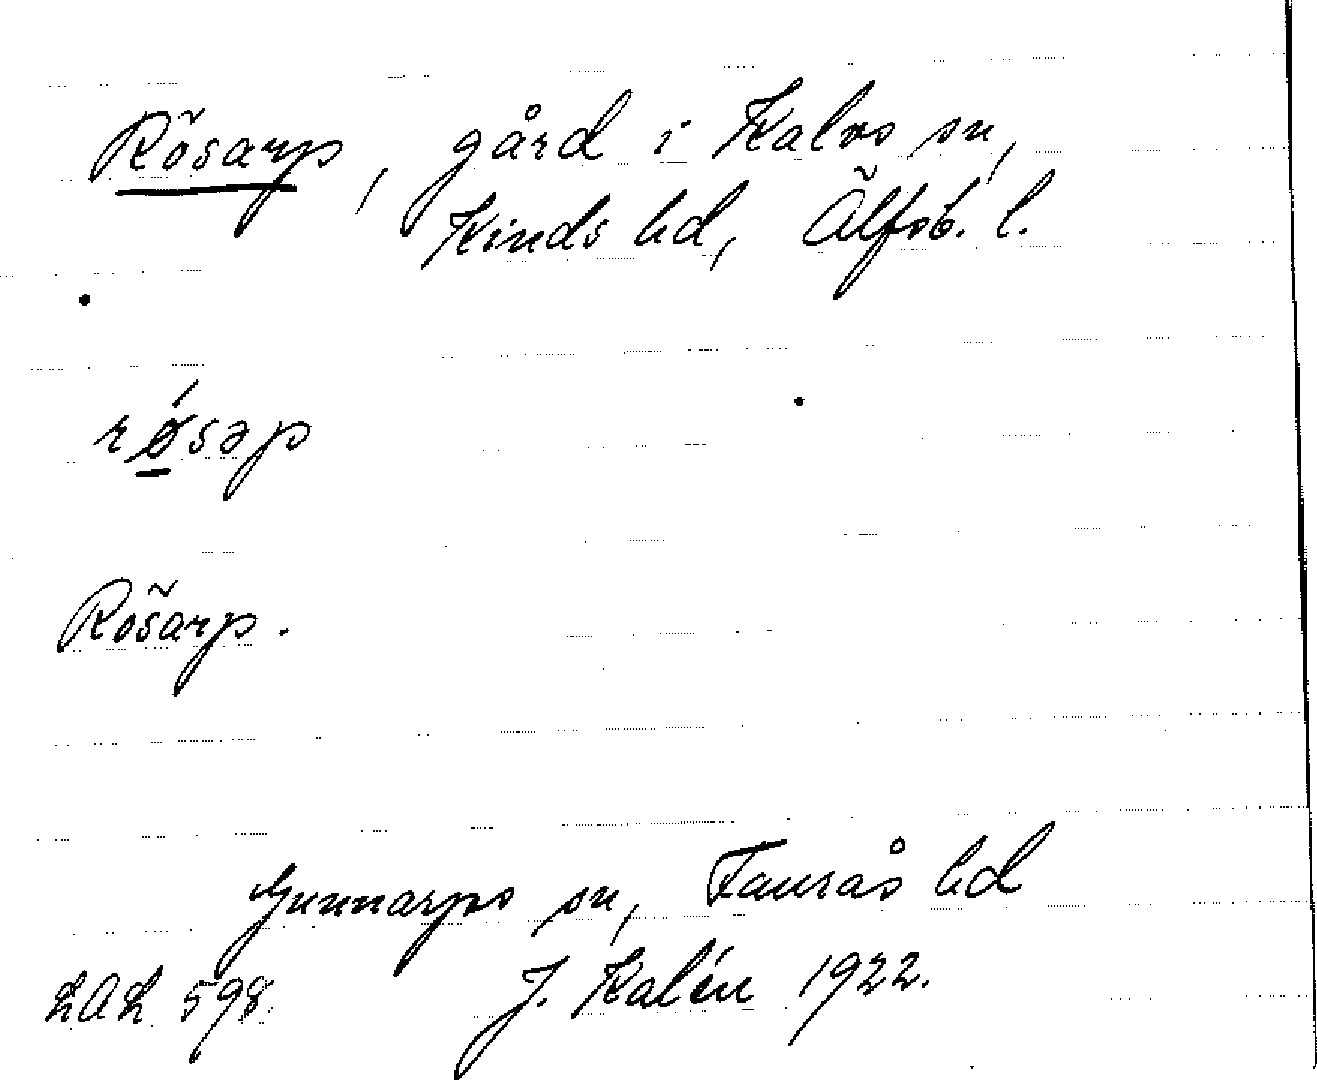 Rösarp, gård i Kalvs sn,
Kinds hd, Älfsb. l.
rǿsəp
Rösarp.
Gunnarps sn, Faurås hd
LAL 598. J. Kalén 1922.